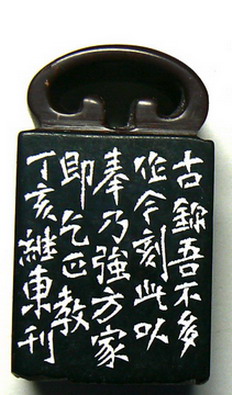 古鉨吾不多
作今刻此以
奉乃強方家
即乞正教
丁亥維東刊